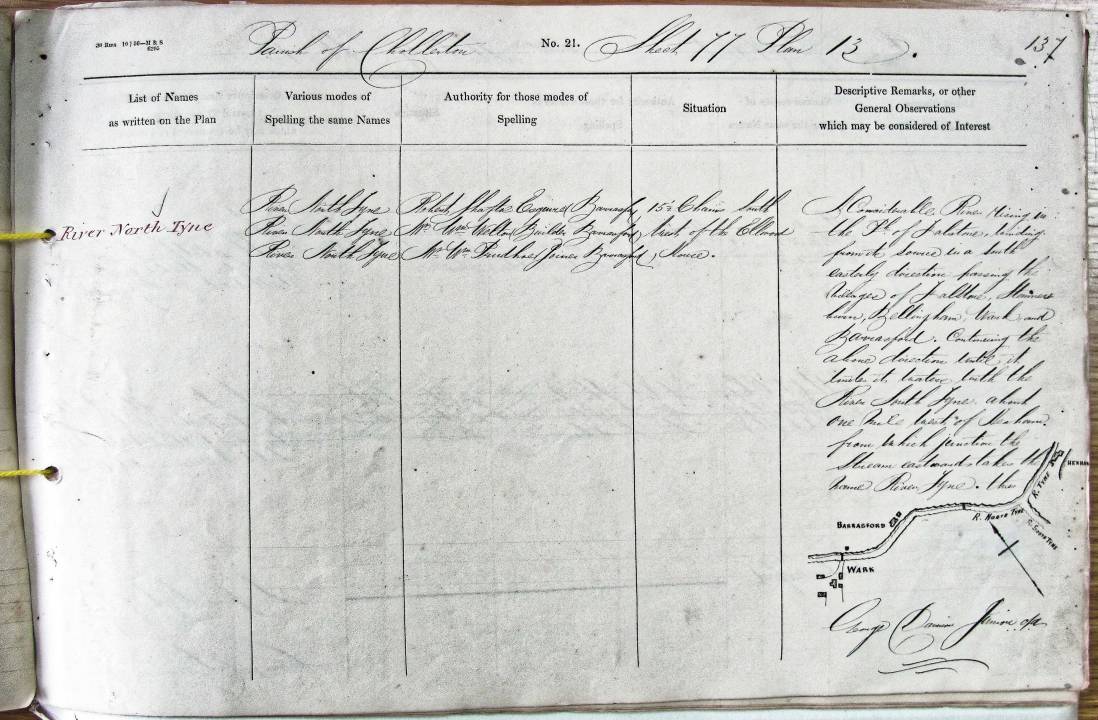 Parish of Chollerton No. 21. Sheet 77 Plan 13. 137
List of Names
as written on the Plan
Various modes of
Spelling the same Names
Authority for those modes of
Spelling
Situation
Descriptive Remarks, or other
General Observations
which may be considered of Interest
River North Tyne
River North Tyne
River North Tyne
River North Tyne
Robert Shafto Esquire Barrasford
Mr. Wm. Builder Barrasford
Mr. Wm. Prudhoe Joiner Barrasford
15½ Chains South
West of the
House.
A Considerable River rising in
the Ph. of Falstone, running
from its source in a south
easterly direction passing the
Villages of Falstone,
Bellingham, Wark and
Barrasford. Continuing the
above direction until it
unites its waters with the
River South Tyne about
one Mile West of Hexham.
from which junction the
Stream eastward takes the
name River Tyne. this
BARRASFORD
WARK
R. NORTH TYNE
R. SOUTH TYNE
R. TYNE
HEXHAM
George